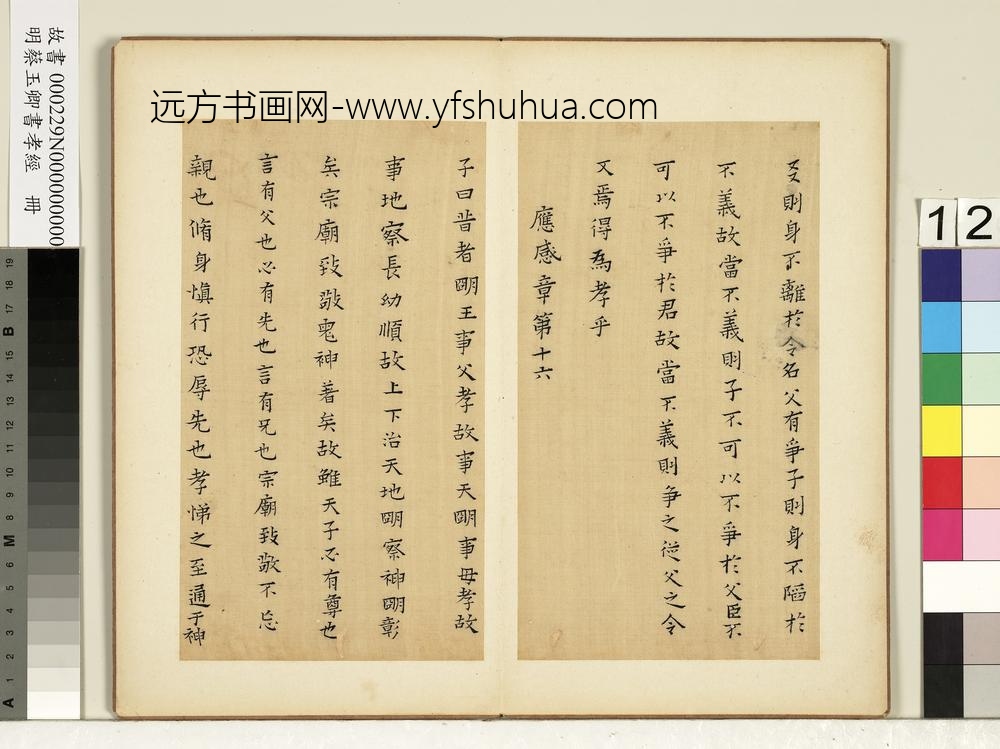 故書 000229N000000000
明蔡玉卿書孝經 冊
远方书画网-www.yfshuhua.com
友則身不離於令名父有爭子則身不陷於
不義故當不義則子不可以不爭於父臣不
可以不爭於君故當不義則争之從父之令
又焉得為孝乎
應感章第十六
子曰昔者明王事父孝故事天明事母孝故
事地察長幼順故上下治天地明察神明彰
矣宗廟致敬鬼神著矣故雖天子必有尊也
言有父也必有先也言有兄也宗廟致敬不忘
親也脩身慎行恐辱先也孝悌之至通于神
12
A 1 2 3 4 5 6 M 8 9 10 11 12 13 14 15 B 17 18 19